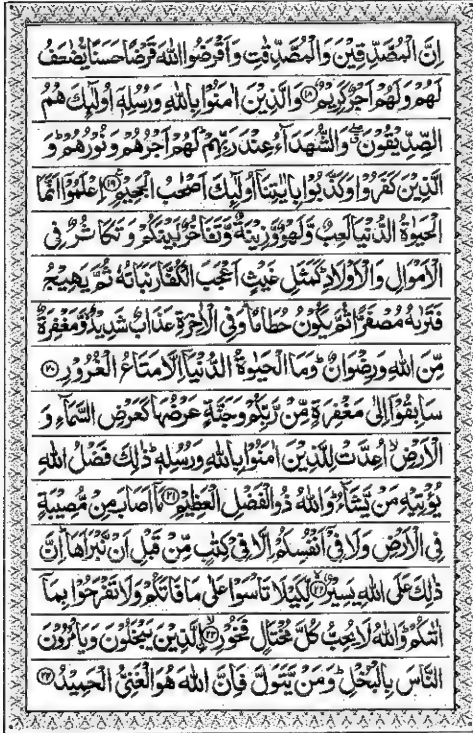 اِنَّ الْمُصَّدِّقِيْنَ وَالْمُصَّدِّقٰتِ وَاَقْرَضُوا اللّٰهَ قَرْضًا حَسَنًا يُّضٰعَفُ
لَهُمْ وَلَهُمْ اَجْرٌ كَرِيْمٌ ۝۱۸ وَالَّذِيْنَ اٰمَنُوْا بِاللّٰهِ وَرُسُلِهٖۤ اُولٰٓئِكَ هُمُ
الصِّدِّيْقُوْنَ ۖ وَالشُّهَدَآءُ عِنْدَ رَبِّهِمْ ؕ لَهُمْ اَجْرُهُمْ وَنُوْرُهُمْ ؕ وَ
الَّذِيْنَ كَفَرُوْا وَكَذَّبُوْا بِاٰيٰتِنَاۤ اُولٰٓئِكَ اَصْحٰبُ الْجَحِيْمِ ۝۱۹ اِعْلَمُوْۤا اَنَّمَا
الْحَيٰوةُ الدُّنْيَا لَعِبٌ وَّلَهْوٌ وَّزِيْنَةٌ وَّتَفَاخُرٌۢ بَيْنَكُمْ وَتَكَاثُرٌ فِى
الْاَمْوَالِ وَالْاَوْلَادِ ؕ كَمَثَلِ غَيْثٍ اَعْجَبَ الْكُفَّارَ نَبَاتُهٗ ثُمَّ يَهِيْجُ
فَتَرٰىهُ مُصْفَرًّا ثُمَّ يَكُوْنُ حُطَامًا ؕ وَفِى الْاٰخِرَةِ عَذَابٌ شَدِيْدٌ ۙ وَّمَغْفِرَةٌ
مِّنَ اللّٰهِ وَرِضْوَانٌ ؕ وَمَا الْحَيٰوةُ الدُّنْيَاۤ اِلَّا مَتَاعُ الْغُرُوْرِ ۝۲۰
سَابِقُوْۤا اِلٰى مَغْفِرَةٍ مِّنْ رَّبِّكُمْ وَجَنَّةٍ عَرْضُهَا كَعَرْضِ السَّمَآءِ وَ
الْاَرْضِ ۙ اُعِدَّتْ لِلَّذِيْنَ اٰمَنُوْا بِاللّٰهِ وَرُسُلِهٖ ؕ ذٰلِكَ فَضْلُ اللّٰهِ
يُؤْتِيْهِ مَنْ يَّشَآءُ ؕ وَاللّٰهُ ذُو الْفَضْلِ الْعَظِيْمِ ۝۲۱ مَاۤ اَصَابَ مِنْ مُّصِيْبَةٍ
فِى الْاَرْضِ وَلَا فِىْۤ اَنْفُسِكُمْ اِلَّا فِىْ كِتٰبٍ مِّنْ قَبْلِ اَنْ نَّبْرَاَهَا ؕ اِنَّ
ذٰلِكَ عَلَى اللّٰهِ يَسِيْرٌ ۝۲۲ لِّكَيْلَا تَاْسَوْا عَلٰى مَا فَاتَكُمْ وَلَا تَفْرَحُوْا بِمَاۤ
اٰتٰىكُمْ ؕ وَاللّٰهُ لَا يُحِبُّ كُلَّ مُخْتَالٍ فَخُوْرِ ۝۲۳ اِۨلَّذِيْنَ يَبْخَلُوْنَ وَيَاْمُرُوْنَ
النَّاسَ بِالْبُخْلِ ؕ وَمَنْ يَّتَوَلَّ فَاِنَّ اللّٰهَ هُوَ الْغَنِىُّ الْحَمِيْدُ ۝۲۴